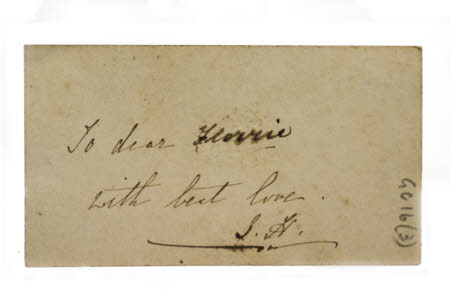 To dear Florrie
with best love.
J. H.
6016(3)